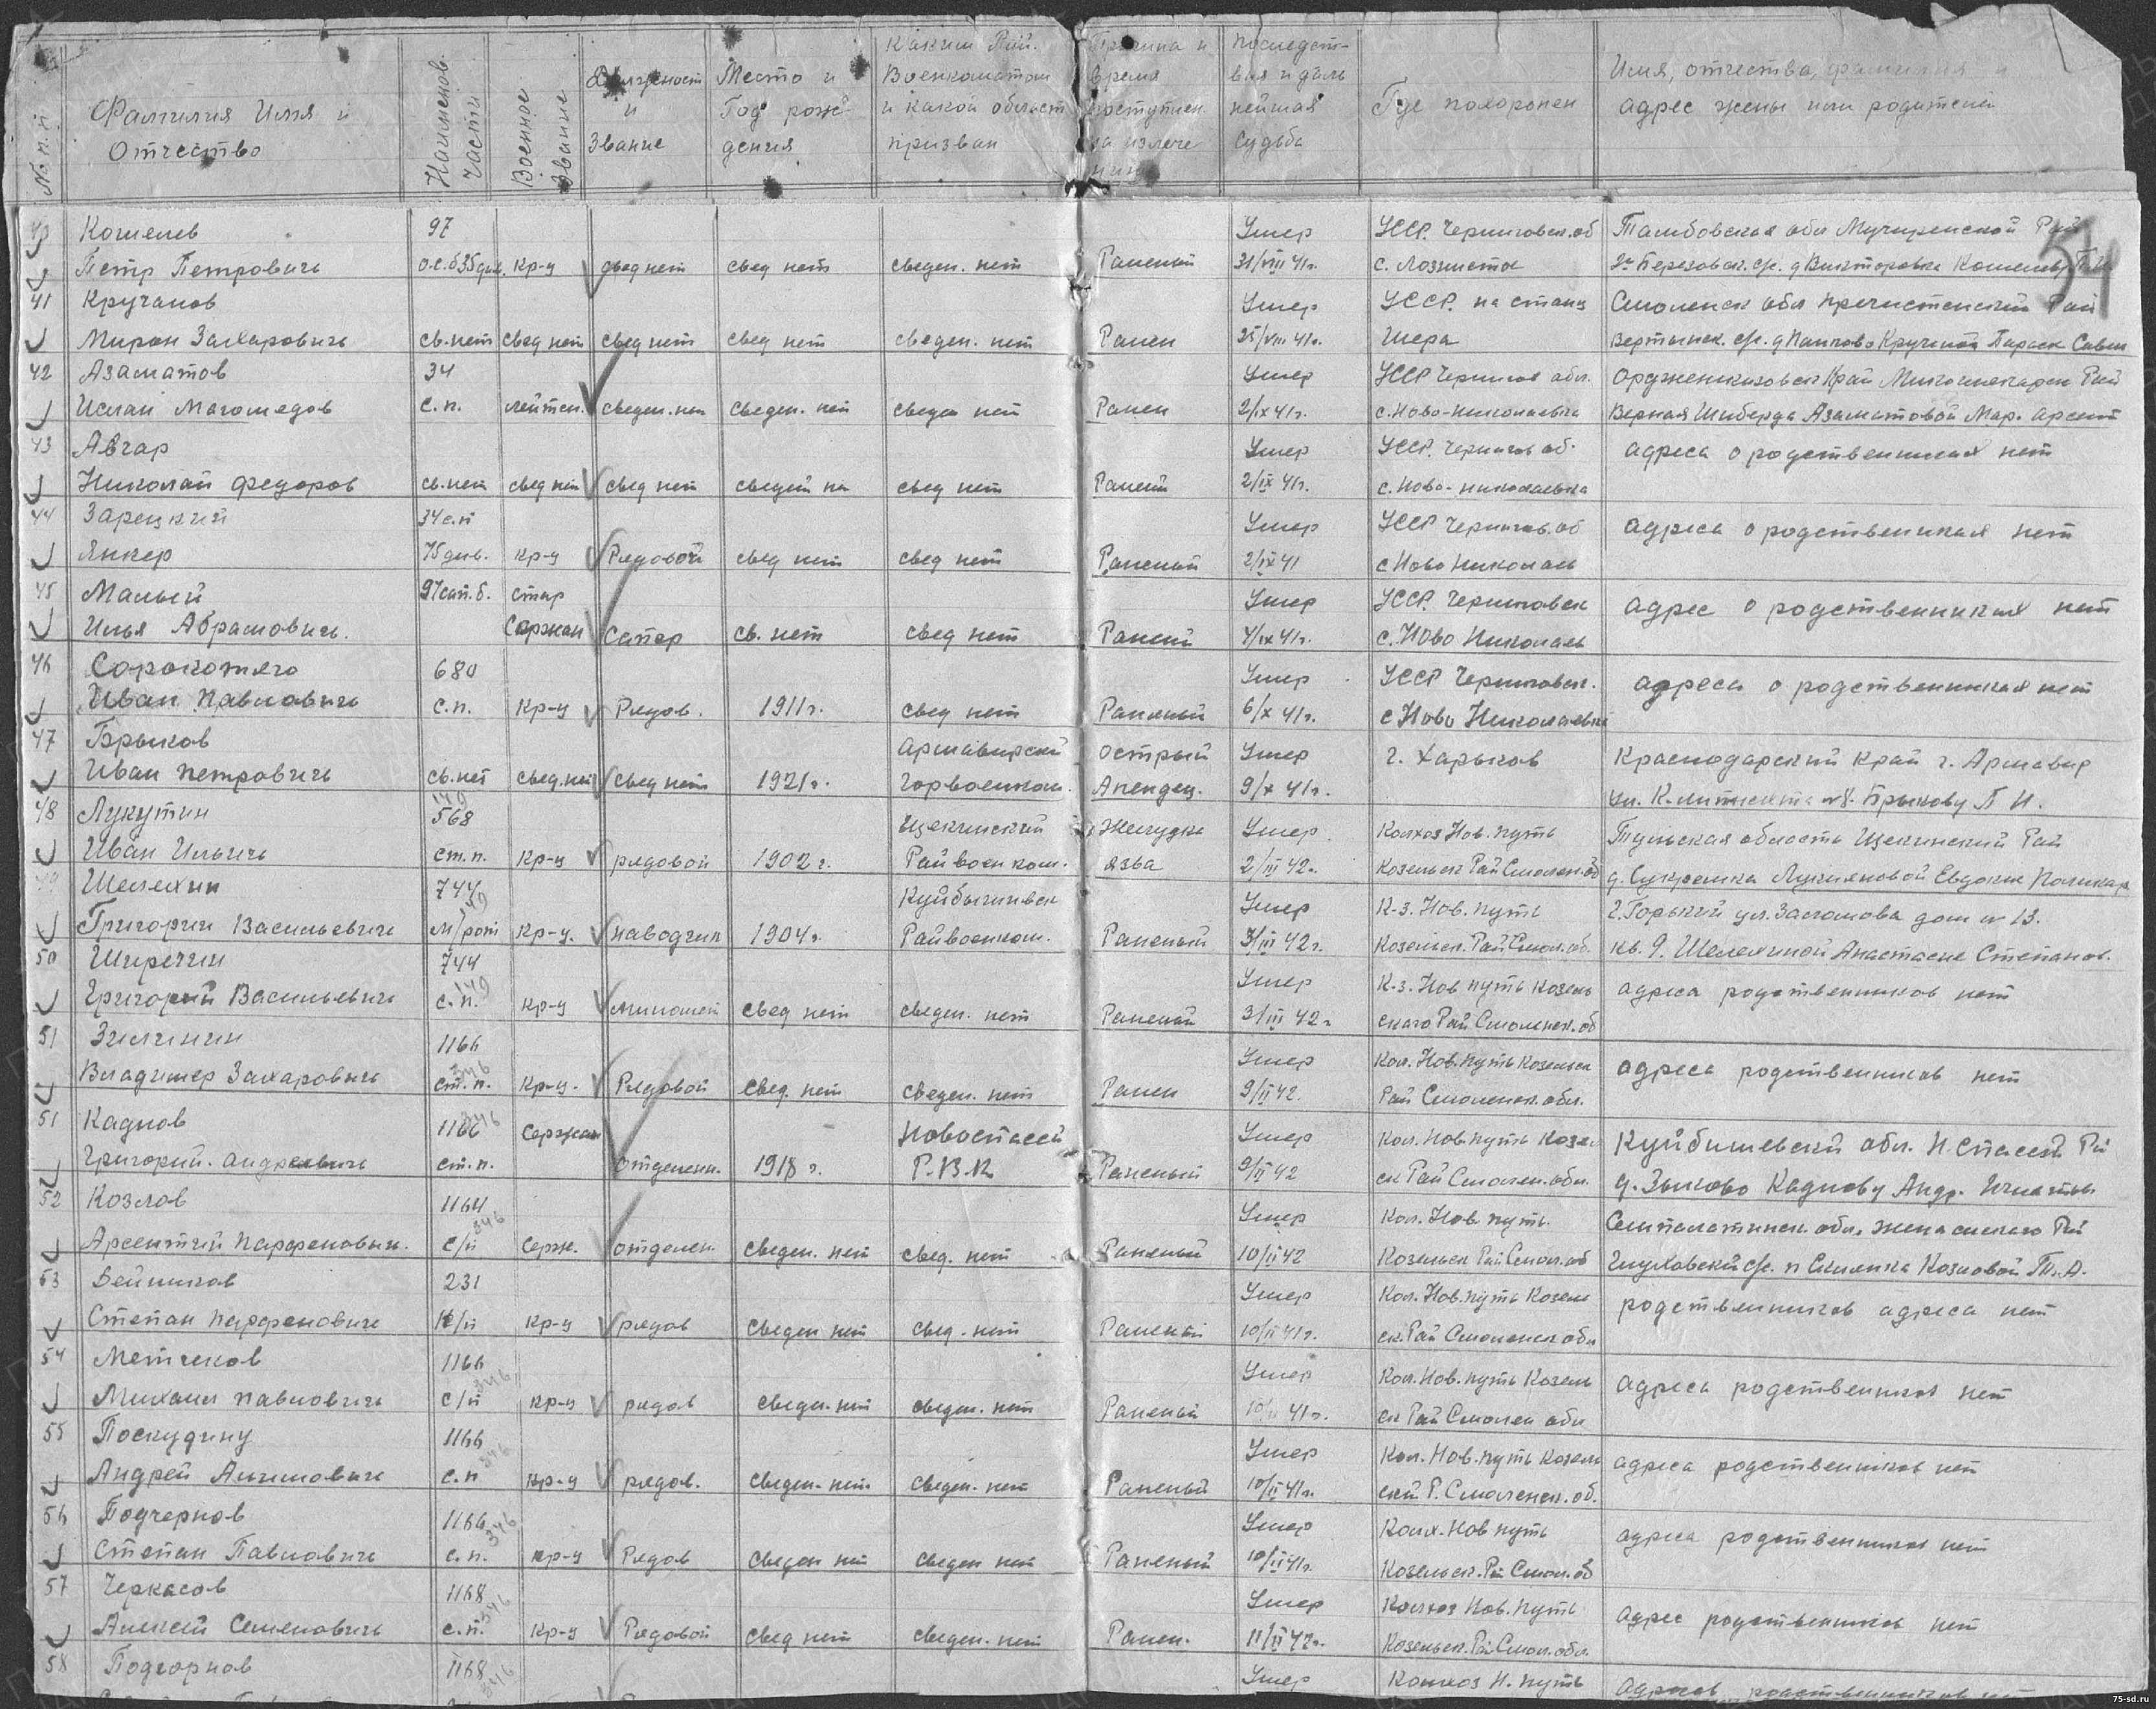 № п.п. Фамилия Имя и Отчество Наименов части Военное звание Должность и Звание Место и Год рождения Каким Рай. Военкоматом и какой област призван Причина и время поступлен. на излечении Последствия и дальнейшая судьба Где похоронен Имя, отчество, фамилия и адрес жены или родителей
54
Кошелев 97 Умер УССР. Черниговск. об Тамбовская обл Мучкапской Рай
Петр Петрович кр-ц свед нет свед нет сведен. нет Раненый 31/VIII 41г. с. Лозниста д Викторовка
41 Кручанов Умер УССР. на станц Смоленск обл Пречистенский Рай
Мирон Захарович св. нет свед нет свед нет свед нет сведен. нет Ранен 25/VIII 41г.
42 Азаматов 34 Умер УССР Чернигов обл. Орджоникизовск Край
Ислам Магомедов с.п. лейтен. сведен. нет сведен. нет сведен нет Ранен 2/IX 41г. с. Ново-николаевка
43 Авчар Умер УССР. Чернигов об. адреса о родственниках нет
Николай федоров св. нет свед нет свед нет сведен не свед нет Раненый 2/IX 41г. с. Ново-николаевка
44 Зарецкий 34 с.п Умер УССР Чернигов. об адреса о родственниках нет
Янкер 75 див. кр-ц Рядовой свед нет свед нет Раненый 2/IX 41 с Ново Николаев
45 Малый 97 сап. б. стар Умер УССР. Черниговск адрес о родственниках нет
Илья Абрамович. Сержан Сапер св. нет свед нет Раненый 4/IX 41г. с. Ново Николаев
46 Сорокотяго 680 Умер УССР Черниговск. адреса о родственниках нет
Иван Павлович с.п. кр-ц Рядов. 1911г. свед нет Раненый 6/X 41г. с Ново Николаевка
47 Брыков Армавирский острый Умер г. Харьков Краснодарский Край г. Армавир
Иван Петрович св. нет свед. нет свед нет 1921г. Горвоенком. Апендец. 9/X 41г. Брыкову П И.
48 Лукутин 149 568 Щекинский Желудка Умер. Колхоз Нов. путь Тульская область Щекинский Рай
Иван Ильич ст. п. кр-ц рядовой 1902г. Райвоенком. язва 2/III 42г. Козельск Рай Смоленск об
49 Шелехин 744 149 Куйбышевск Умер К-з. Нов. путь г. Горький ул. Заломова дом № 13.
Григорий Васильевич м/рот кр-ц. наводчик 1904г. Райвоенком. Раненый 3/III 42г. Козельск. Рай Смол. об. кв. 9. Шелехиной Анастасие Степанов.
50 Ширечин 744 149 Умер К-з. Нов путь Козель адреса родственников нет
Григорий Васильевич с. п. кр-ц миномет свед нет сведен. нет Раненый 3/III 42г ского Рай Смоленск. об
51 Зилинин 1166 346 Умер Кол. Нов. путь Козельск адреса родственников нет
Владимер Захарович ст. п. кр-ц. Рядовой свед. нет сведен. нет Ранен 9/II 42. Рай Смоленск. обл.
51 Каднов 1166 346 Сержан Новоспасск Умер Кол. Нов. путь Козе Куйбишевский обл. Н. Спасск Р-й
Григорий. Андреевич ст. п. отделенн. 1918г. Р.В.К Раненый 9/II 42 ск Рай Смолен. обл. д. Зыково Каднову Андр.
52 Козлов 1164 346 Умер Кол. Нов путь. Семипалатинск. обл.
Арсентий Парфенович. с/п Серж. отделен. сведен. нет свед. нет Раненый 10/II 42 Козельск Рай Смол. об Козловой Т.А.
53 Вейников 231 Умер Кол. Нов. путь Козель родственников адреса нет
Степан Парфенович с/п кр-ц рядов сведен нет свед. нет Раненый 10/II 41г. ск. Рай Смоленск обл
54 Метчеков 1166 346 Умер Кол. Нов. путь Козель адреса родственников нет
Михаил Павлович с/п кр-ц рядов сведен. нет сведен. нет Раненый 10/II 41г. ск Рай Смолен обл
55 Поскудину 1166 346 Умер Кол. Нов. путь Козель адреса родственников нет
Андрей Анимович с. п кр-ц рядов. сведен. нет сведен. нет Раненый 10/II 41г. ский Р. Смоленск. об.
56 Подчернов 1166 346 Умер Колх. Нов путь адреса родственников нет
Степан Павлович с. п. кр-ц Рядов сведен нет сведен нет Раненый 10/II 41г. Козельск. Рй Смол. об
57 Черкасов 1168 346 Умер Колхоз Нов. путь адрес родственников нет
Алексей Семенович с. п. кр-ц Рядовой свед нет сведен. нет Ранен. 11/II 42г. Козельск. Рй Смол. обл.
58 Подгорнов 1168 346 Умер Колхоз Н. путь Адресов родственников нет
75-sd.ru